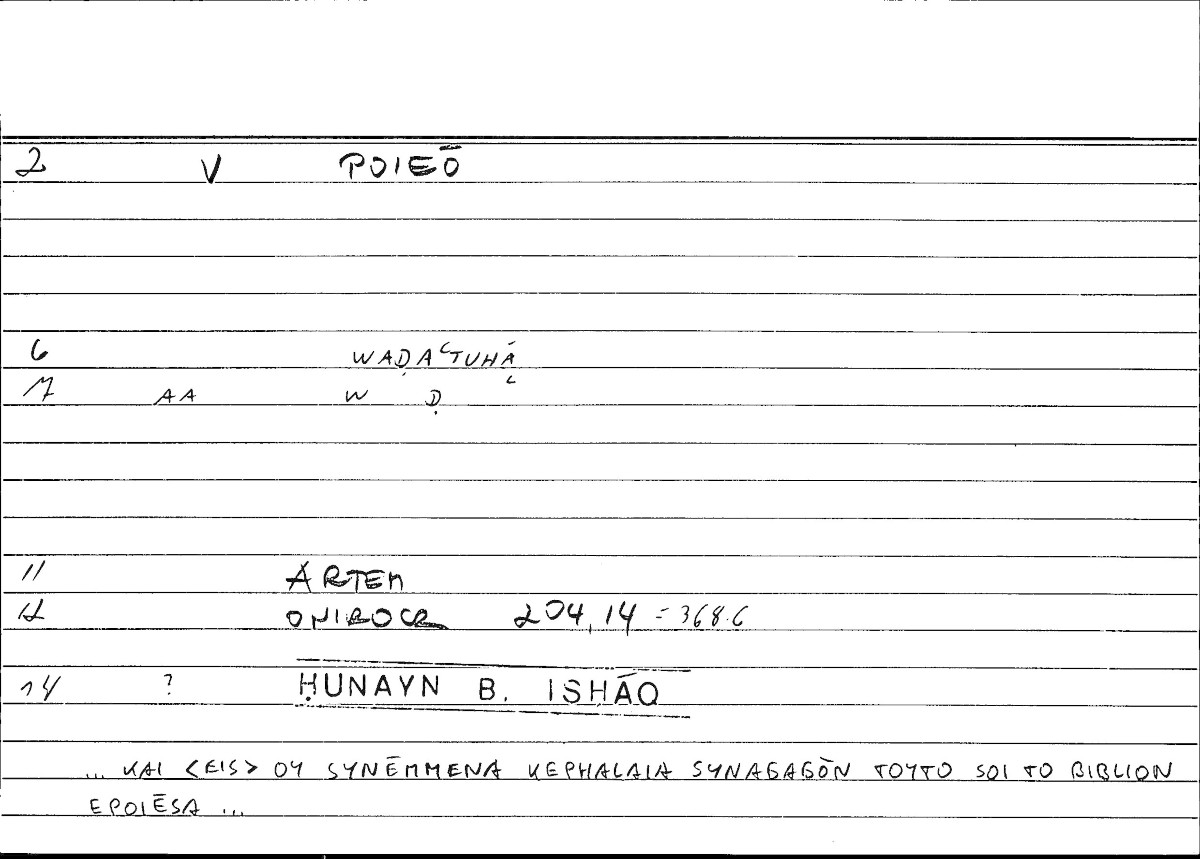 2 V POIEŌ
6 WAḌAʿTUHĀ
7 AA W Ḍ
11 ARTEM
12 ONIROCR 204,14 = 368.6
14 ? ḤUNAYN B. ISḤĀQ
... KAI <EIS> OY SYNĒMMENA KEPHALAIA SYNAGAGŌN TOYTO SOI TO BIBLION
EPOIĒSA ...